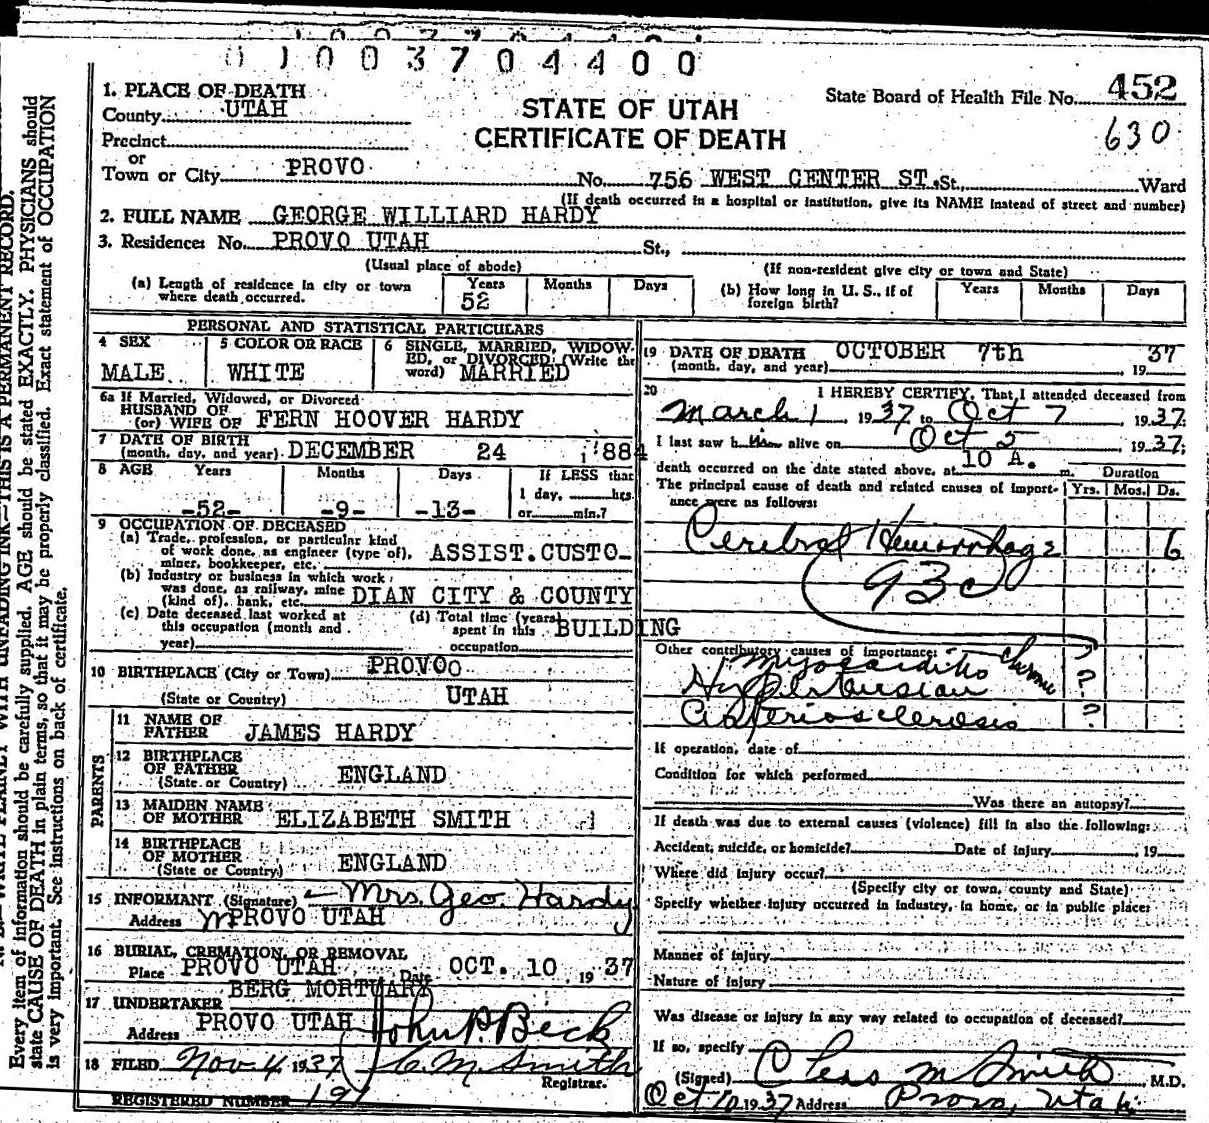 01003704400
1. PLACE OF DEATH
County UTAH
Precinct
or
Town or City PROVO
STATE OF UTAH
CERTIFICATE OF DEATH
State Board of Health File No. 452
630
No. 756 WEST CENTER ST. St., Ward
(If death occurred in a hospital or institution, give its NAME instead of street and number)
2. FULL NAME GEORGE WILLIARD HARDY
3. Residence: No. PROVO UTAH St.,
(Usual place of abode)
(If non-resident give city or town and State)
(a) Length of residence in city or town where death occurred.
Years Months Days
52
(b) How long in U. S., if of foreign birth?
Years Months Days
PERSONAL AND STATISTICAL PARTICULARS
4 SEX
MALE
5 COLOR OR RACE
WHITE
6 SINGLE, MARRIED, WIDOW-
ED, or DIVORCED: (Write the
word) MARRIED
6a If Married, Widowed, or Divorced
HUSBAND OF
(or) WIFE OF FERN HOOVER HARDY
7 DATE OF BIRTH
(month, day, and year) DECEMBER 24 1884
8 AGE Years Months Days If LESS than
1 day, hrs.
or min.?
-52- -9- -13-
9 OCCUPATION OF DECEASED
(a) Trade, profession, or particular kind
of work done, as engineer (type of),
miner, bookkeeper, etc. ASSIST.CUSTO-
(b) Industry or business in which work
was done, as railway, mine
(kind of), bank, etc. DIAN CITY & COUNTY
(c) Date deceased last worked at
this occupation (month and
year)
(d) Total time (years)
spent in this
occupation
BUILDING
10 BIRTHPLACE (City or Town) PROVOO
(State or Country) UTAH
PARENTS
11 NAME OF
FATHER JAMES HARDY
12 BIRTHPLACE
OF FATHER
(State or Country) ENGLAND
13 MAIDEN NAME
OF MOTHER ELIZABETH SMITH
14 BIRTHPLACE
OF MOTHER
(State or Country) ENGLAND
15 INFORMANT (Signature) Mrs. Geo. Hardy
Address PROVO UTAH
16 BURIAL, CREMATION, OR REMOVAL
Place PROVO UTAH Date OCT. 10, 19 37
17 UNDERTAKER BERG MORTUARY
Address PROVO UTAH John P. Beck
18 FILED Nov 4, 1937 C. M. Smith
Registrar.
REGISTERED NUMBER 191
19 DATE OF DEATH OCTOBER 7th 37
(month, day, and year) , 19
20 I HEREBY CERTIFY, That I attended deceased from
March 1, 1937, to Oct 7, 1937;
I last saw him alive on Oct 5 1937;
death occurred on the date stated above, at 10 A. m.
Duration
The principal cause of death and related causes of import-
ance were as follows:
Yrs. Mos. Ds.
Cerebral Hemorrhage 6
93c
Other contributory causes of importance:
Myocarditis Chronic ?
Hypertension ?
Arteriosclerosis ?
If operation, date of
Condition for which performed
Was there an autopsy?
If death was due to external causes (violence) fill in also the following:
Accident, suicide, or homicide? Date of injury , 19
Where did injury occur?
(Specify city or town, county and State)
Specify whether injury occurred in industry, in home, or in public place:
Manner of injury
Nature of injury
Was disease or injury in any way related to occupation of deceased?
If so, specify
(Signed) Cleas M Smith, M.D.
Oct 10, 1937 Address Provo, Utah.
Every item of information should be carefully supplied. AGE should be stated EXACTLY. PHYSICIANS should
state CAUSE OF DEATH in plain terms, so that it may be properly classified. Exact statement of OCCUPATION
is very important. See instructions on back of certificate.